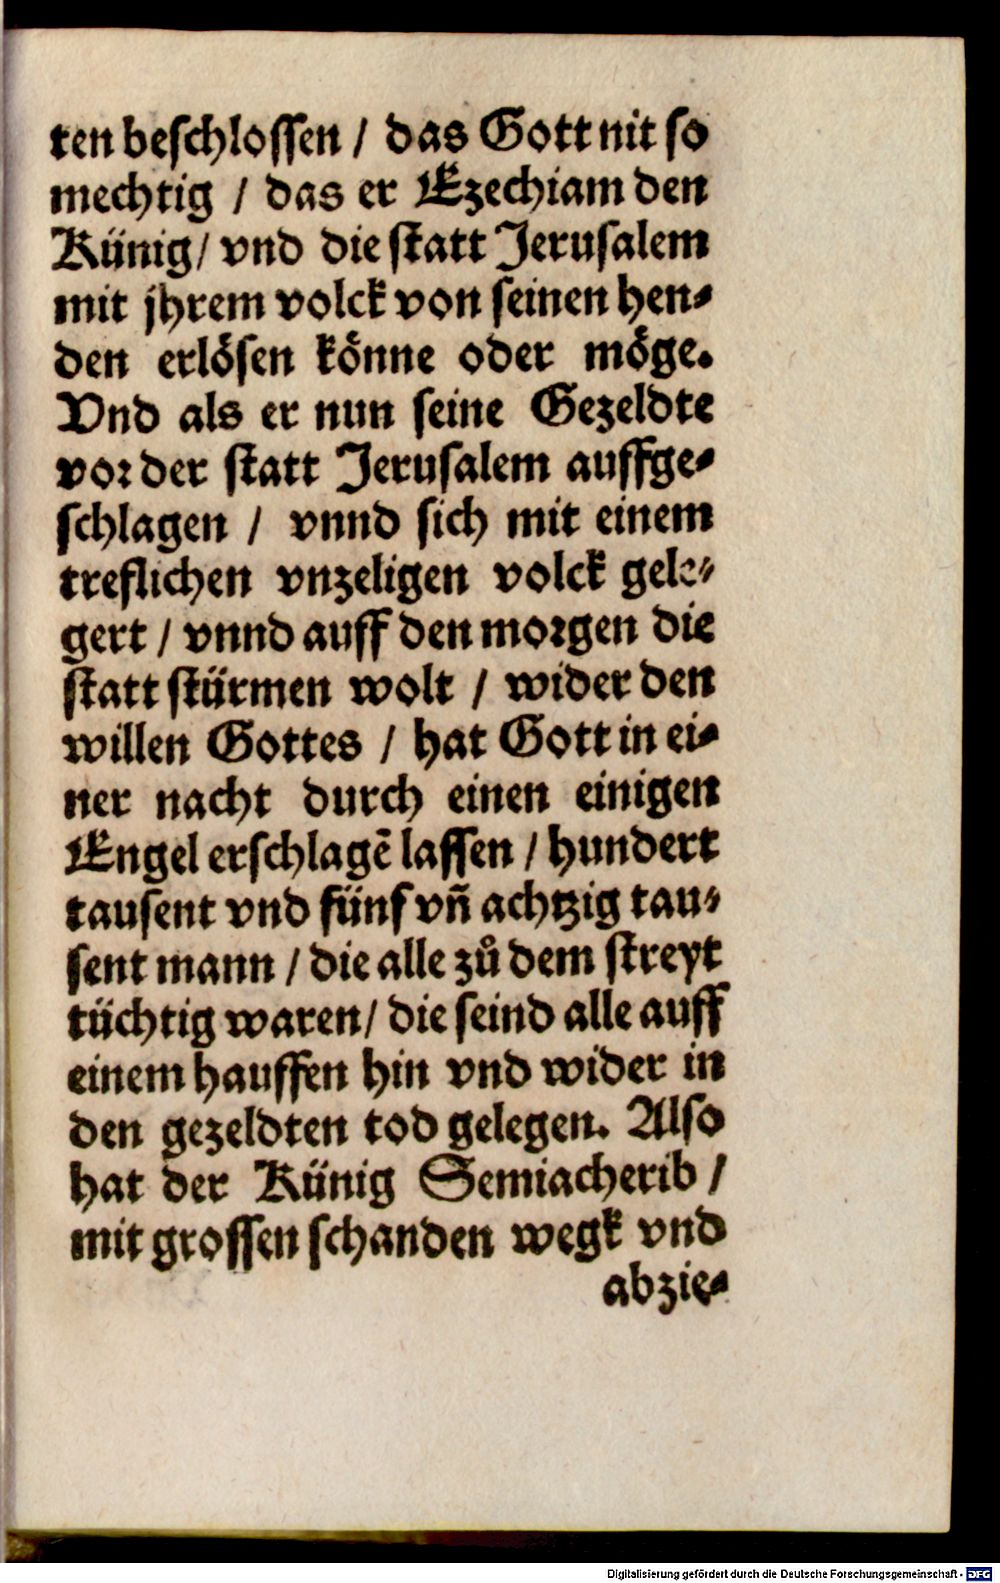 ten beschlossen / das Gott nit so
mechtig / das er Ezechiam den
Künig / vnd die statt Jerusalem
mit jhrem volck von seinen hen⸗
den erlösen könne oder möge.
Vnd als er nun seine Gezeldte
vor der statt Jerusalem auffge⸗
schlagen / vnnd sich mit einem
treflichen vnzeligen volck gele⸗
gert / vnnd auff den morgen die
statt stürmen wolt / wider den
willen Gottes / hat Gott in ei⸗
ner nacht durch einen einigen
Engel erschlagẽ lassen / hundert
tausent vnd fünf vñ achtzig tau⸗
sent mann / die alle zů dem streyt
tüchtig waren / die seind alle auff
einem hauffen hin vnd wider in
den gezeldten tod gelegen. Also
hat der Künig Semiacherib /
mit grossen schanden wegk vnd
abzie⸗
Digitalisierung gefördert durch die Deutsche Forschungsgemeinschaft - DFG